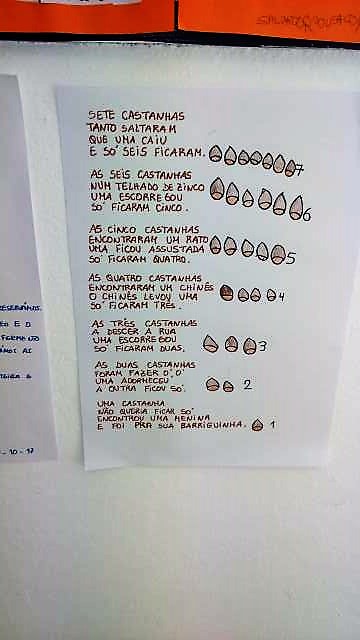 SALVADOR SOUSA
SETE CASTANHAS
TANTO SALTARAM
QUE UMA CAIU
E SÓ SEIS FICARAM. 7
AS SEIS CASTANHAS
NUM TELHADO DE ZINCO
UMA ESCORREGOU
SÓ FICARAM CINCO. 6
AS CINCO CASTANHAS
ENCONTRARAM UM RATO
UMA FICOU ASSUSTADA
SÓ FICARAM QUATRO. 5
AS QUATRO CASTANHAS
ENCONTRARAM UM CHINÊS
O CHINÊS LEVOU UMA
SÓ FICARAM TRÊS. 4
AS TRÊS CASTANHAS
A DESCER A RUA
UMA ESCORREGOU
SÓ FICARAM DUAS. 3
AS DUAS CASTANHAS
FORAM FAZER Ó,Ó
UMA ADORMECEU
A OUTRA FICOU SÓ. 2
UMA CASTANHA
NÃO QUERIA FICAR SÓ
ENCONTROU UMA MENINA
E FOI PRA SUA BARRIGUINHA. 1
E O
- 10 - 17